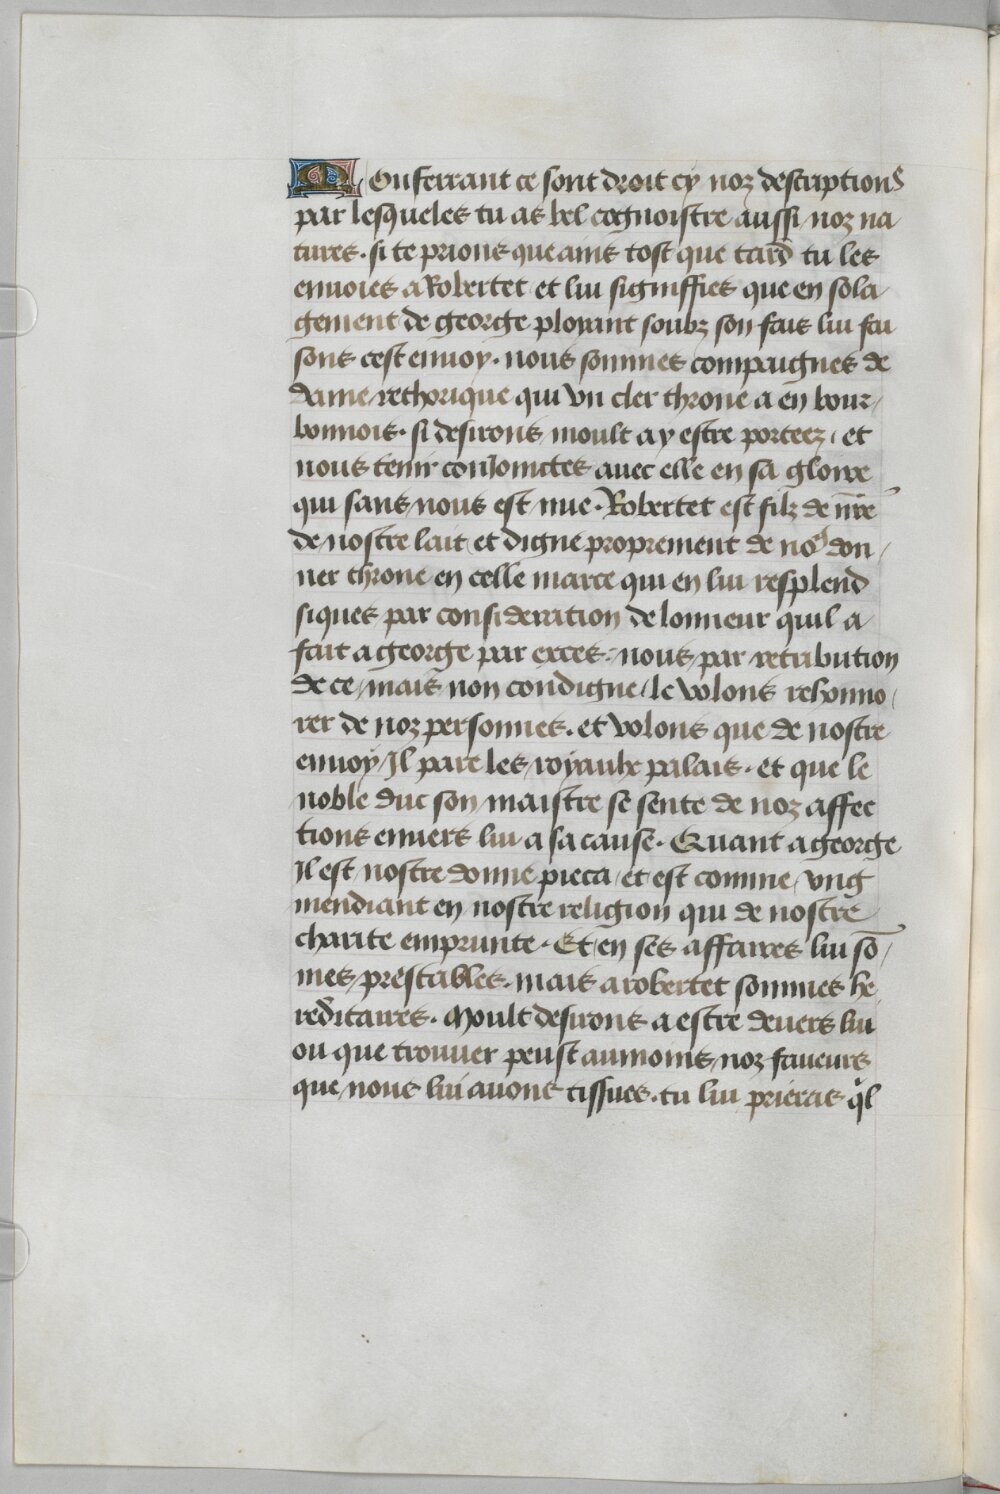 Monferrant ce sont droit cy noz descriptions
par lesqueles tu as bel cognoistre aussi noz na
tures . si te prions que ains tost que tard tu les
enuoies a Robertet et lui signiffies que en sola
gement de george ployant soubz son fais lui fai
sons cest enuoy . nous sommes compaignes de
dame rethorique qui vn cler throne a en bour/
bonnois . si desirons moult a y estre porteez / et
nous tenir conJoinctes auec elle en sa gloire
qui sans nous est nue . Robertet est filz de nr̄e
de nostre lait et digne proprement de no⁹ don /
ner throne en celle marce qui en lui resplend
siques par consideration de lonneur quil a
fait a george par exces . nous par retribution
de ce / mais non condigne / le volons rehonno /
rer de noz personnes . et volons que de nostre
enuoy Il pare les royaulx palais . et que le
noble duc son maistre se sente de noz affec
tions enuers lui a sa cause . Quant a george
Il est nostre donne pieca / et est comme vng
mendiant en nostre religion qui de nostre
charite emprunte . Et en ses affaires lui sō /
mes prestables . mais a robertet sommes he
reditaires . Moult desirons a estre deuers lui
ou que trouuer peust aumoins noz faueurs
que nous lui auons tissues . tu lui prieras q̄l